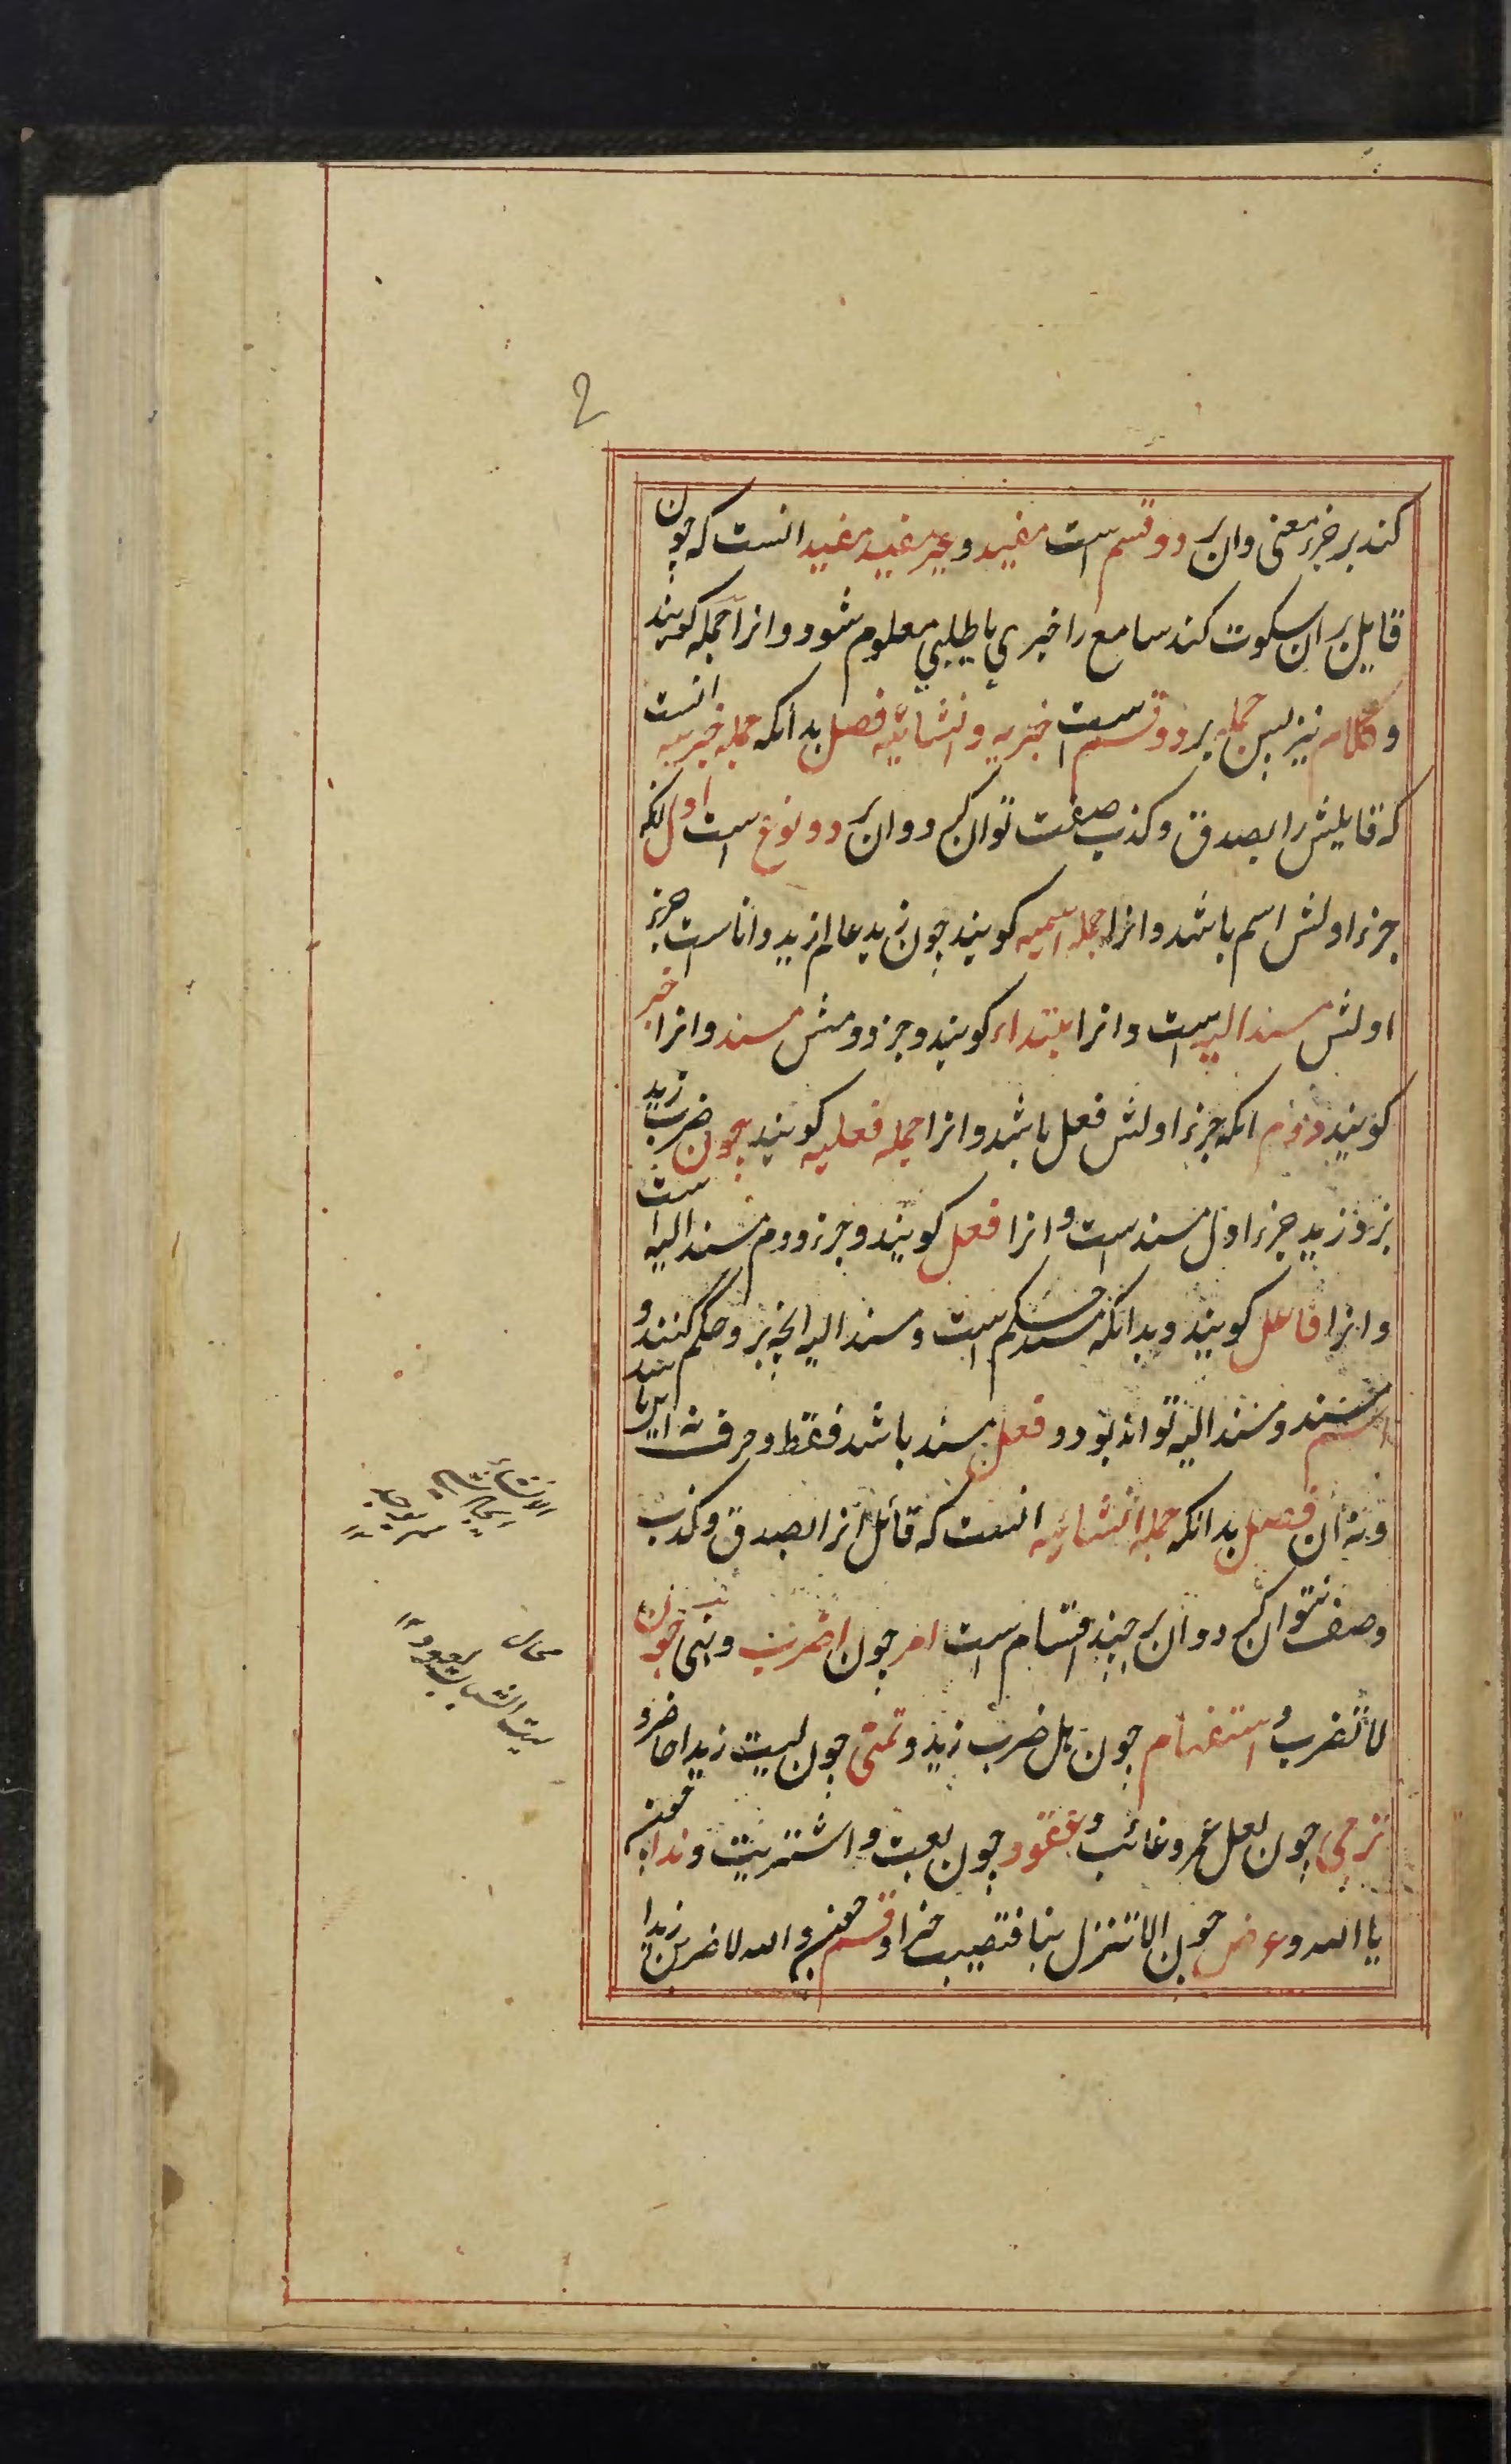 2
کند بر جزء معنی وان بر دو قسم است مفید و غیر مفید مفید انست که چون
قایل بر ان سکوت کند سامع را خبری یا طلبی معلوم شود و انرا جمله کویند
و کلام نیز پس جمله بر دو قسم است خبریه و انشائیه فصل بدانکه جمله خبریه انست
که قایلش را بصدق و کذب صفت توان کرد و ان بر دو نوع است اول انکه
جزء اولش اسم باشد و انرا جمله اسمیه کویند چون زید عالم زید دانا است جزء
اولش مسند الیه است و انرا مبتداء کویند و جزء دومش مسند و انرا خبر
کویند دوم انکه جزء اولش فعل باشد و انرا جمله فعلیه کویند چون ضرب زید
بزد زید جزء اول مسند است و انرا فعل کویند و جزء دوم مسند الیه است
و انرا فاعل کویند و بدانکه مسند حکم است و مسند الیه انچه بر و حکم کنند و
اسم مسند و مسند الیه تواند بود و فعل مسند باشد فقط و حرف نه این باشد
و نه ان فصل بدانکه جمله انشائیه انست که قائل انرا بصدق و کذب
وصف نتوان کرد و ان بر چند اقسام است امر چون اضرب و نهی چون
لا تضرب و استفهام چون هل ضرب زید و تمنی چون لیت زیدا حاضر و
ترجی چون لعل عمرو غائب و عقود چون بعت و اشتریت و ندا چون
یا الله و عرض چون الا تنزل بنا فتصیب خیرا و قسم چون والله لاضربن زیدا
محال
لیت الشباب یعود